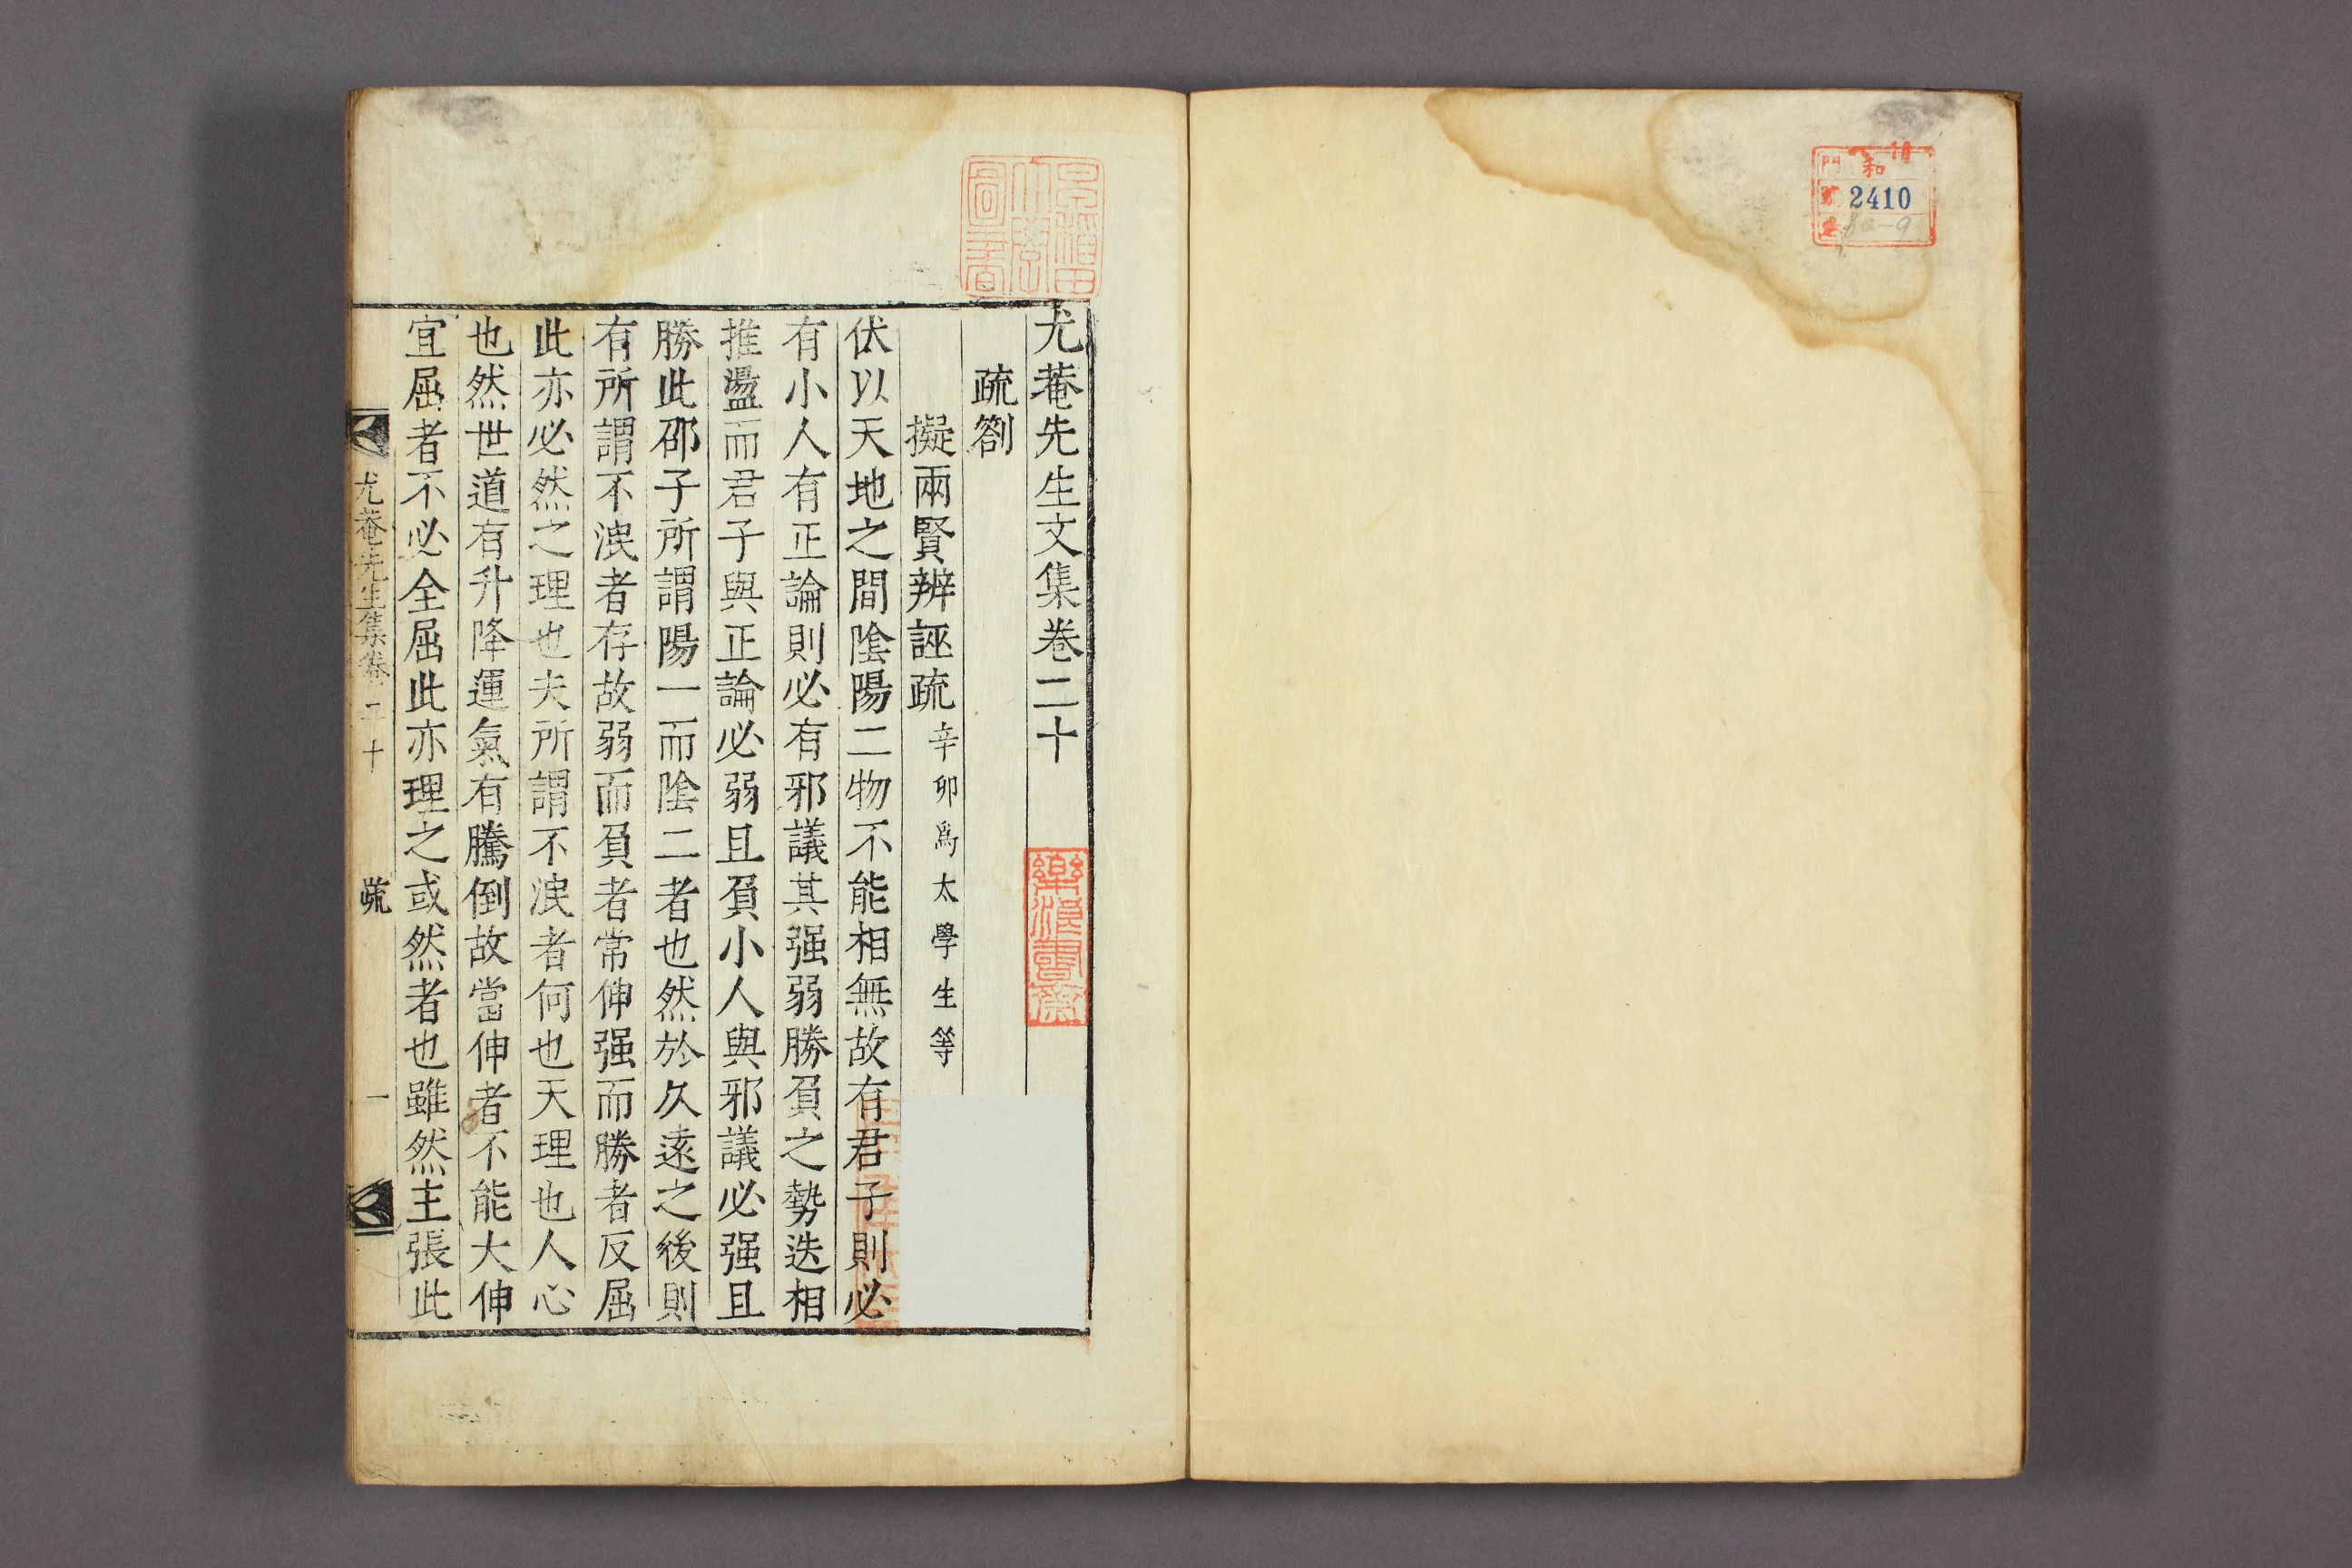 和
門
2410
尤菴先生文集卷二十
疏劄
擬兩賢辨誣疏 辛卯爲太學生等
伏以天地之間陰陽二物不能相無故有君子則必
有小人有正論則必有邪議其强弱勝負之勢迭相
推盪而君子與正論必弱且負小人與邪議必强且
勝此邵子所謂陽一而陰二者也然於久遠之後則
有所謂不泯者存故弱而負者常伸强而勝者反屈
此亦必然之理也夫所謂不泯者何也天理也人心
也然世道有升降運氣有騰倒故當伸者不能大伸
宜屈者不必全屈此亦理之或然者也雖然主張此
尤菴先生集卷二十 疏 一
早稻田大學圖書
樂浪書齋